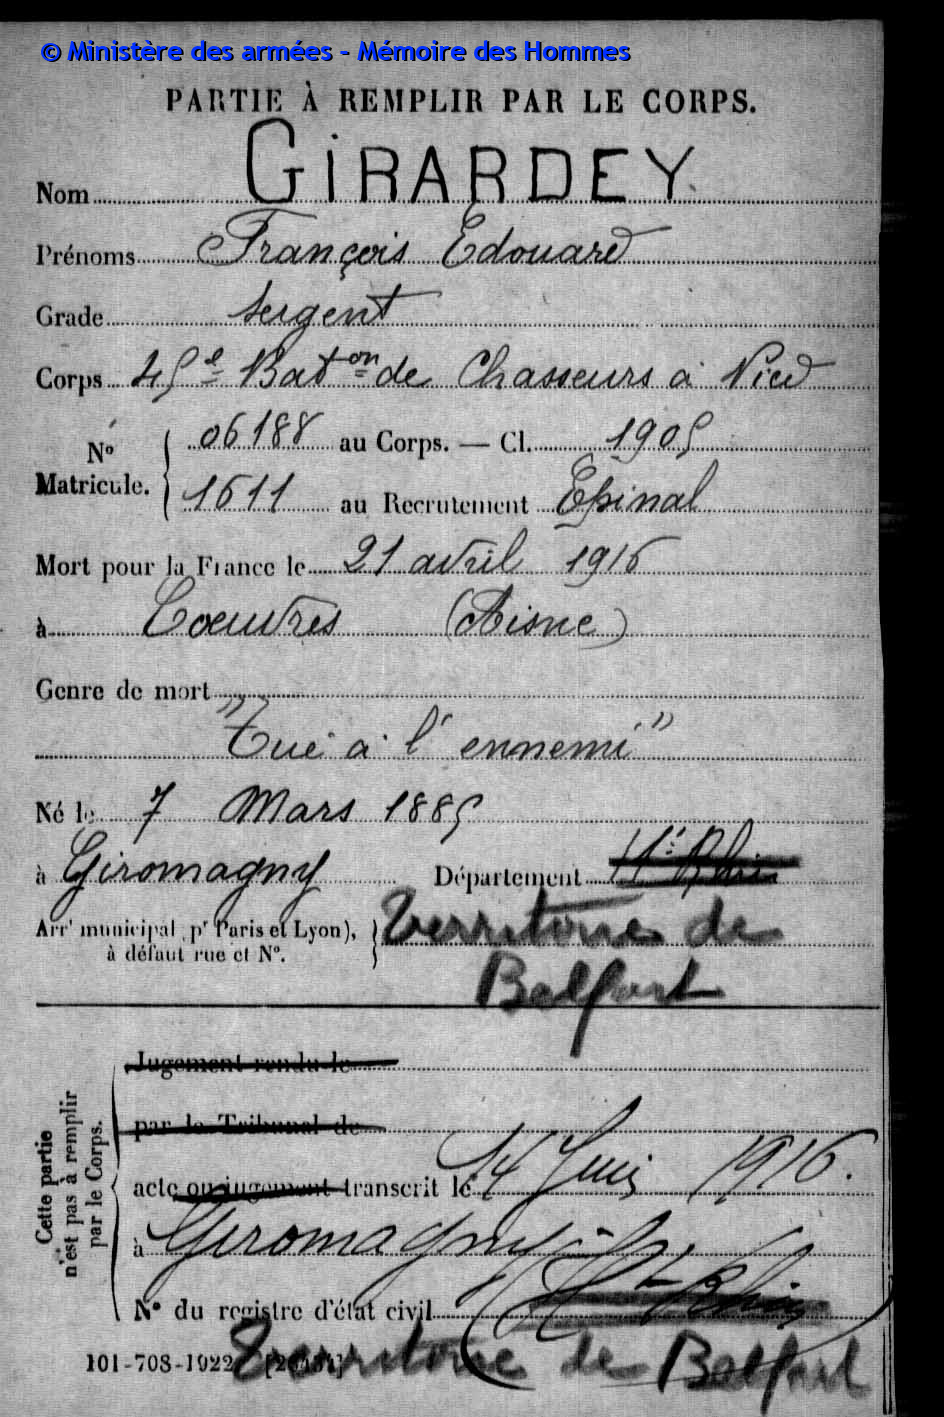 © Ministère des armées - Mémoire des Hommes
PARTIE À REMPLIR PAR LE CORPS.
Nom GIRARDEY
Prénoms François Edouard
Grade Sergent
Corps 45e Baton de Chasseurs à Pied
No Matricule. 06188 au Corps. — Cl. 1905
1611 au Recrutement Epinal
Mort pour la France le 21 avril 1916
à Coeuvres (Aisne)
Genre de mort
"Tué à l'ennemi"
Né le 7 Mars 1885
à Giromagny Département Ht Rhin
Arrt municipal pr Paris et Lyon), Territoire de
à défaut rue et No.
Belfort
Cette partie n'est pas à remplir par le Corps.
Jugement rendu le
par le Tribunal de
acte ou jugement transcrit le 14 Juin 1916.
à Giromagny (Ht Rhin)
No du registre d'état civil
Territoire de Belfort
101-708-1922